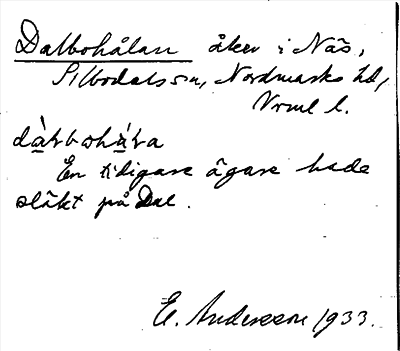 Dalbohålan åker i Näs,
Silbodals sn, Nordmarks hd,
Vrml l.
dàrbohára
En tidigare ägare hade
släkt på Dal.
E. Andersson 1933.